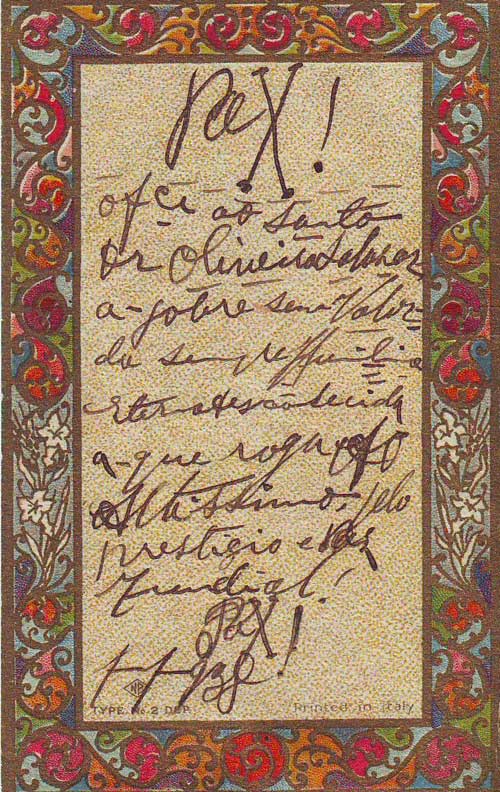 Pax!
ofce ao Santo
Dr Oliveira Salazar
a pobre sem Valor
da sempre
Eterna desconhecida
a que roga ao
Altissimo, pelo
prestigio e Paz
Mundial!
Pax!
TYPE No. 2 DEP. Printed in Italy